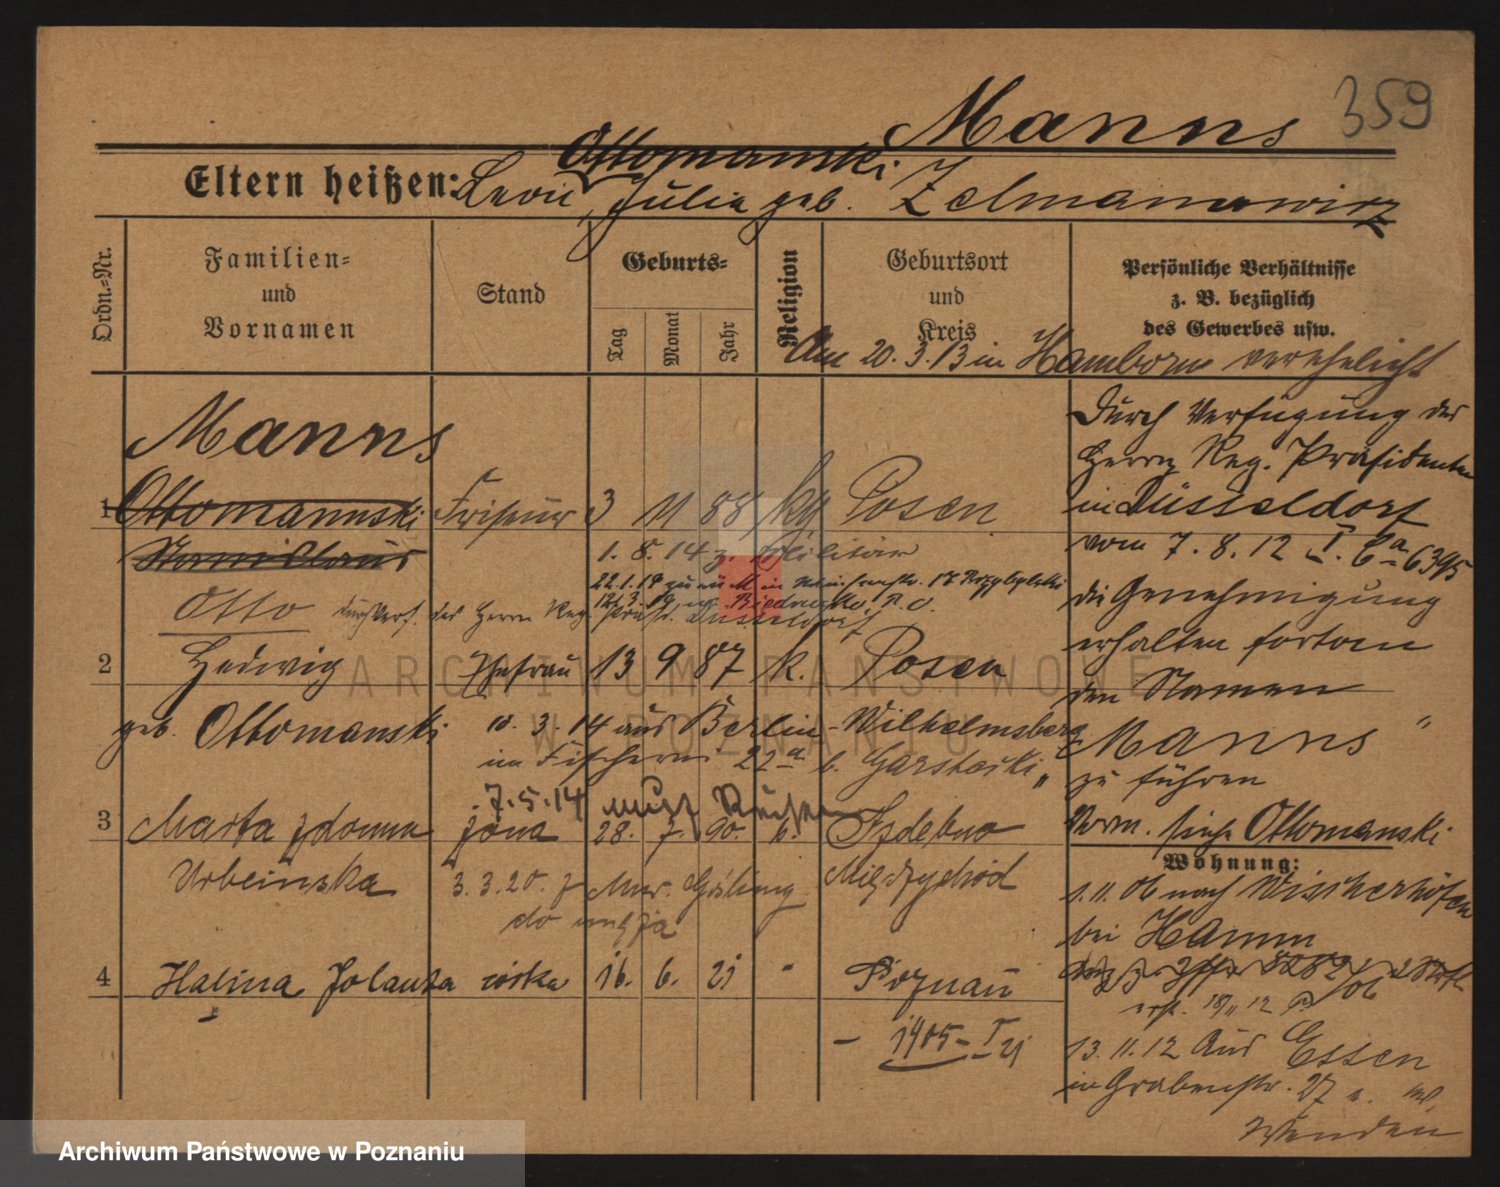 359
Manns
Ottomanski
Eltern heißen: Leon, Julie geb. Zelmanowicz
Ordn.-Nr.
Familien-
und
Vornamen
Stand
Geburts-
Tag
Monat
Jahr
Religion
Geburtsort
und
Kreis
Persönliche Verhältnisse
z. B. bezüglich
des Gewerbes usw.
Am 20.3.13 in Hamborn verehelicht
Manns
1 Ottomannski Friseur 3 11 88 kg Posen
Stanislaus
1. 8. 14 z. Militär
22.1.19
Otto durch Verf. des Herrn Reg. Präsid. Düsseldorf
2 Hedwig Ehefrau 13 9 87 k. Posen
geb. Ottomanski 10. 3. 14 aus Berlin-Wilhelmsberg
in Fischerei 22a b. Garstecki
7.5.14
3 Marta Zdonna żona 28. 7. 90. k. Izdebno
Urbeinska 3. 3. 20. z Międzychód
do męża
4 Halina Jolanta córka 16. 6. 21 " Poznań
- 1405 - I 21
Durch Verfügung des
Herrn Reg. Präsidenten
in Düsseldorf
vom 7. 8. 12 I. Ca 6395
die Genehmigung
erhalten fortan
den Namen
„Manns“
zu führen
Vorm. siehe Ottomanski
Wohnung:
1.11.06 nach Wischerhöfen
bei Hamm
13. 11. 12 Aus Essen
in Grabenstr. 27 b.
ARCHIWUM PAŃSTWOWE
W POZNANIU
Archiwum Państwowe w Poznaniu